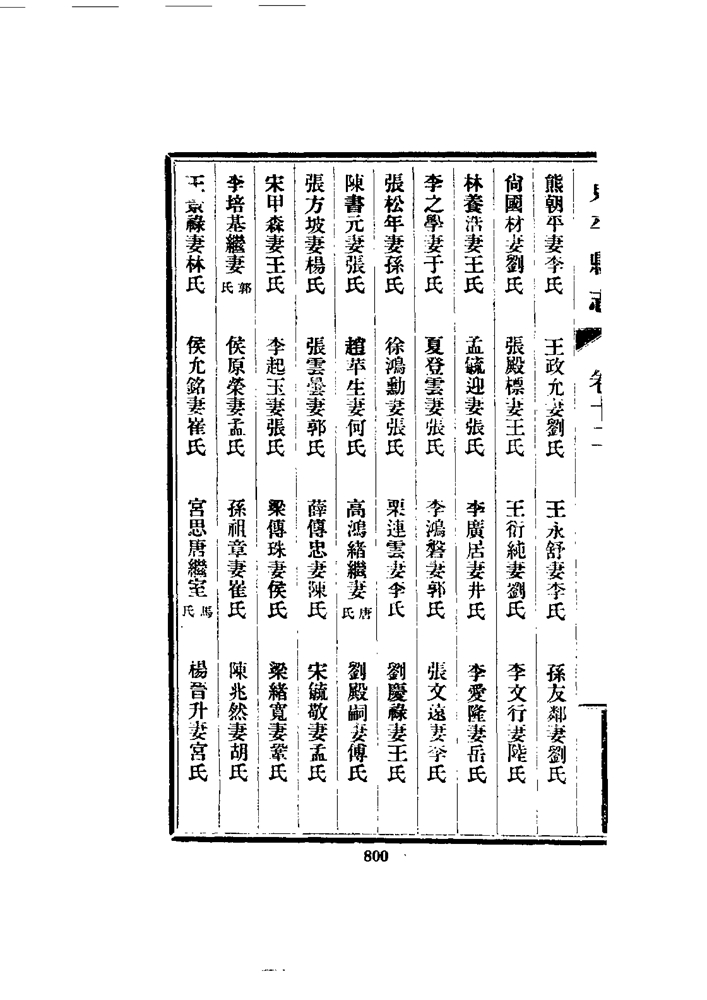 縣志 卷十二
熊朝平妻李氏 王政允妻劉氏 王永舒妻李氏 孫友鄰妻劉氏
尙國材妻劉氏 張殿標妻王氏 王衍純妻劉氏 李文行妻陸氏
林養浩妻王氏 孟毓迎妻張氏 李廣居妻井氏 李愛隆妻岳氏
李之學妻于氏 夏登雲妻張氏 李鴻磐妻郭氏 張文遠妻李氏
張松年妻孫氏 徐鴻勳妻張氏 栗連雲妻李氏 劉慶祿妻王氏
陳書元妻張氏 趙苹生妻何氏 高鴻緒繼妻唐氏 劉殿嗣妻傅氏
張方坡妻楊氏 張雲曇妻郭氏 薛傳忠妻陳氏 宋毓敬妻孟氏
宋甲森妻王氏 李起玉妻張氏 梁傳珠妻侯氏 梁緒寬妻鞏氏
李培基繼妻郭氏 侯原榮妻孟氏 孫祖章妻崔氏 陳兆然妻胡氏
王景祿妻林氏 侯允銘妻崔氏 宮思唐繼室馬氏 楊晉升妻宮氏
800